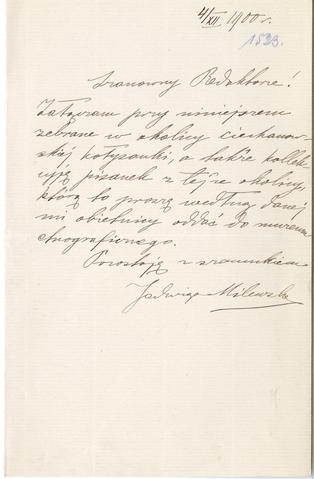 4/XII 1900 r.
1533.
Szanowny Redaktorze!
Załączam przy niniejszem
zebrane w okolicy ciechanow-
skiej kołysanki, a także kollek-
cyję pisanek z tejże okolicy,
którą to proszę według danej
mi obietnicy oddać do muzeum
etnograficznego.
Pozostaję z szacunkiem
Jadwiga Milewska